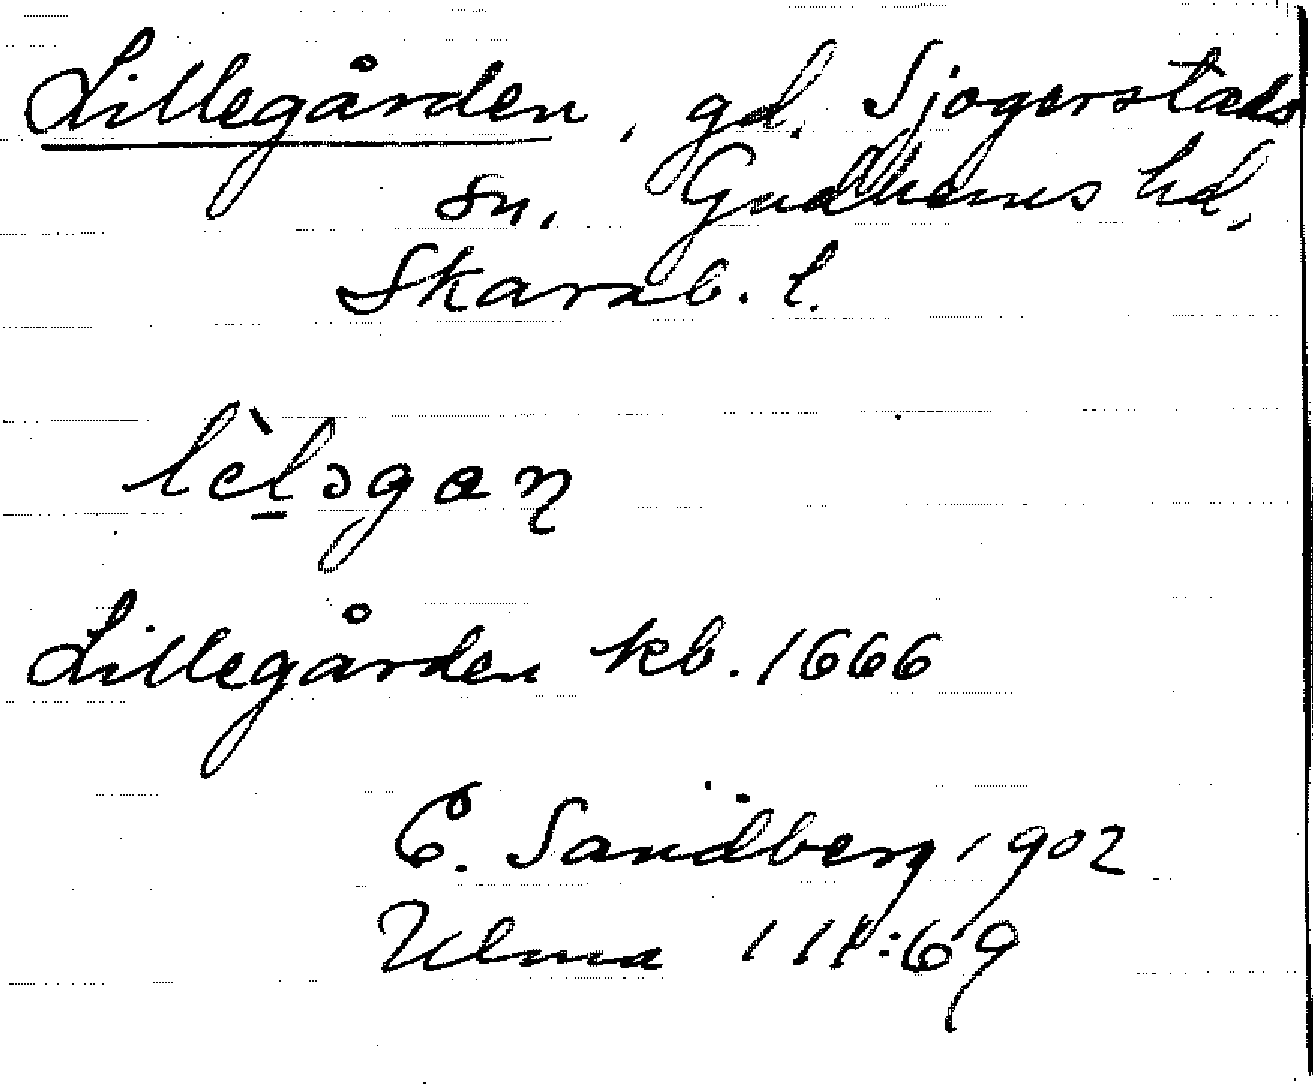 Lillegården, gd. Sjogerstads
sn. Gudhems hd,
Skarab. l.
lèl̠əgaɳ
Lillegården kb. 1666
C. Sandberg 1902
Ulma 111:69